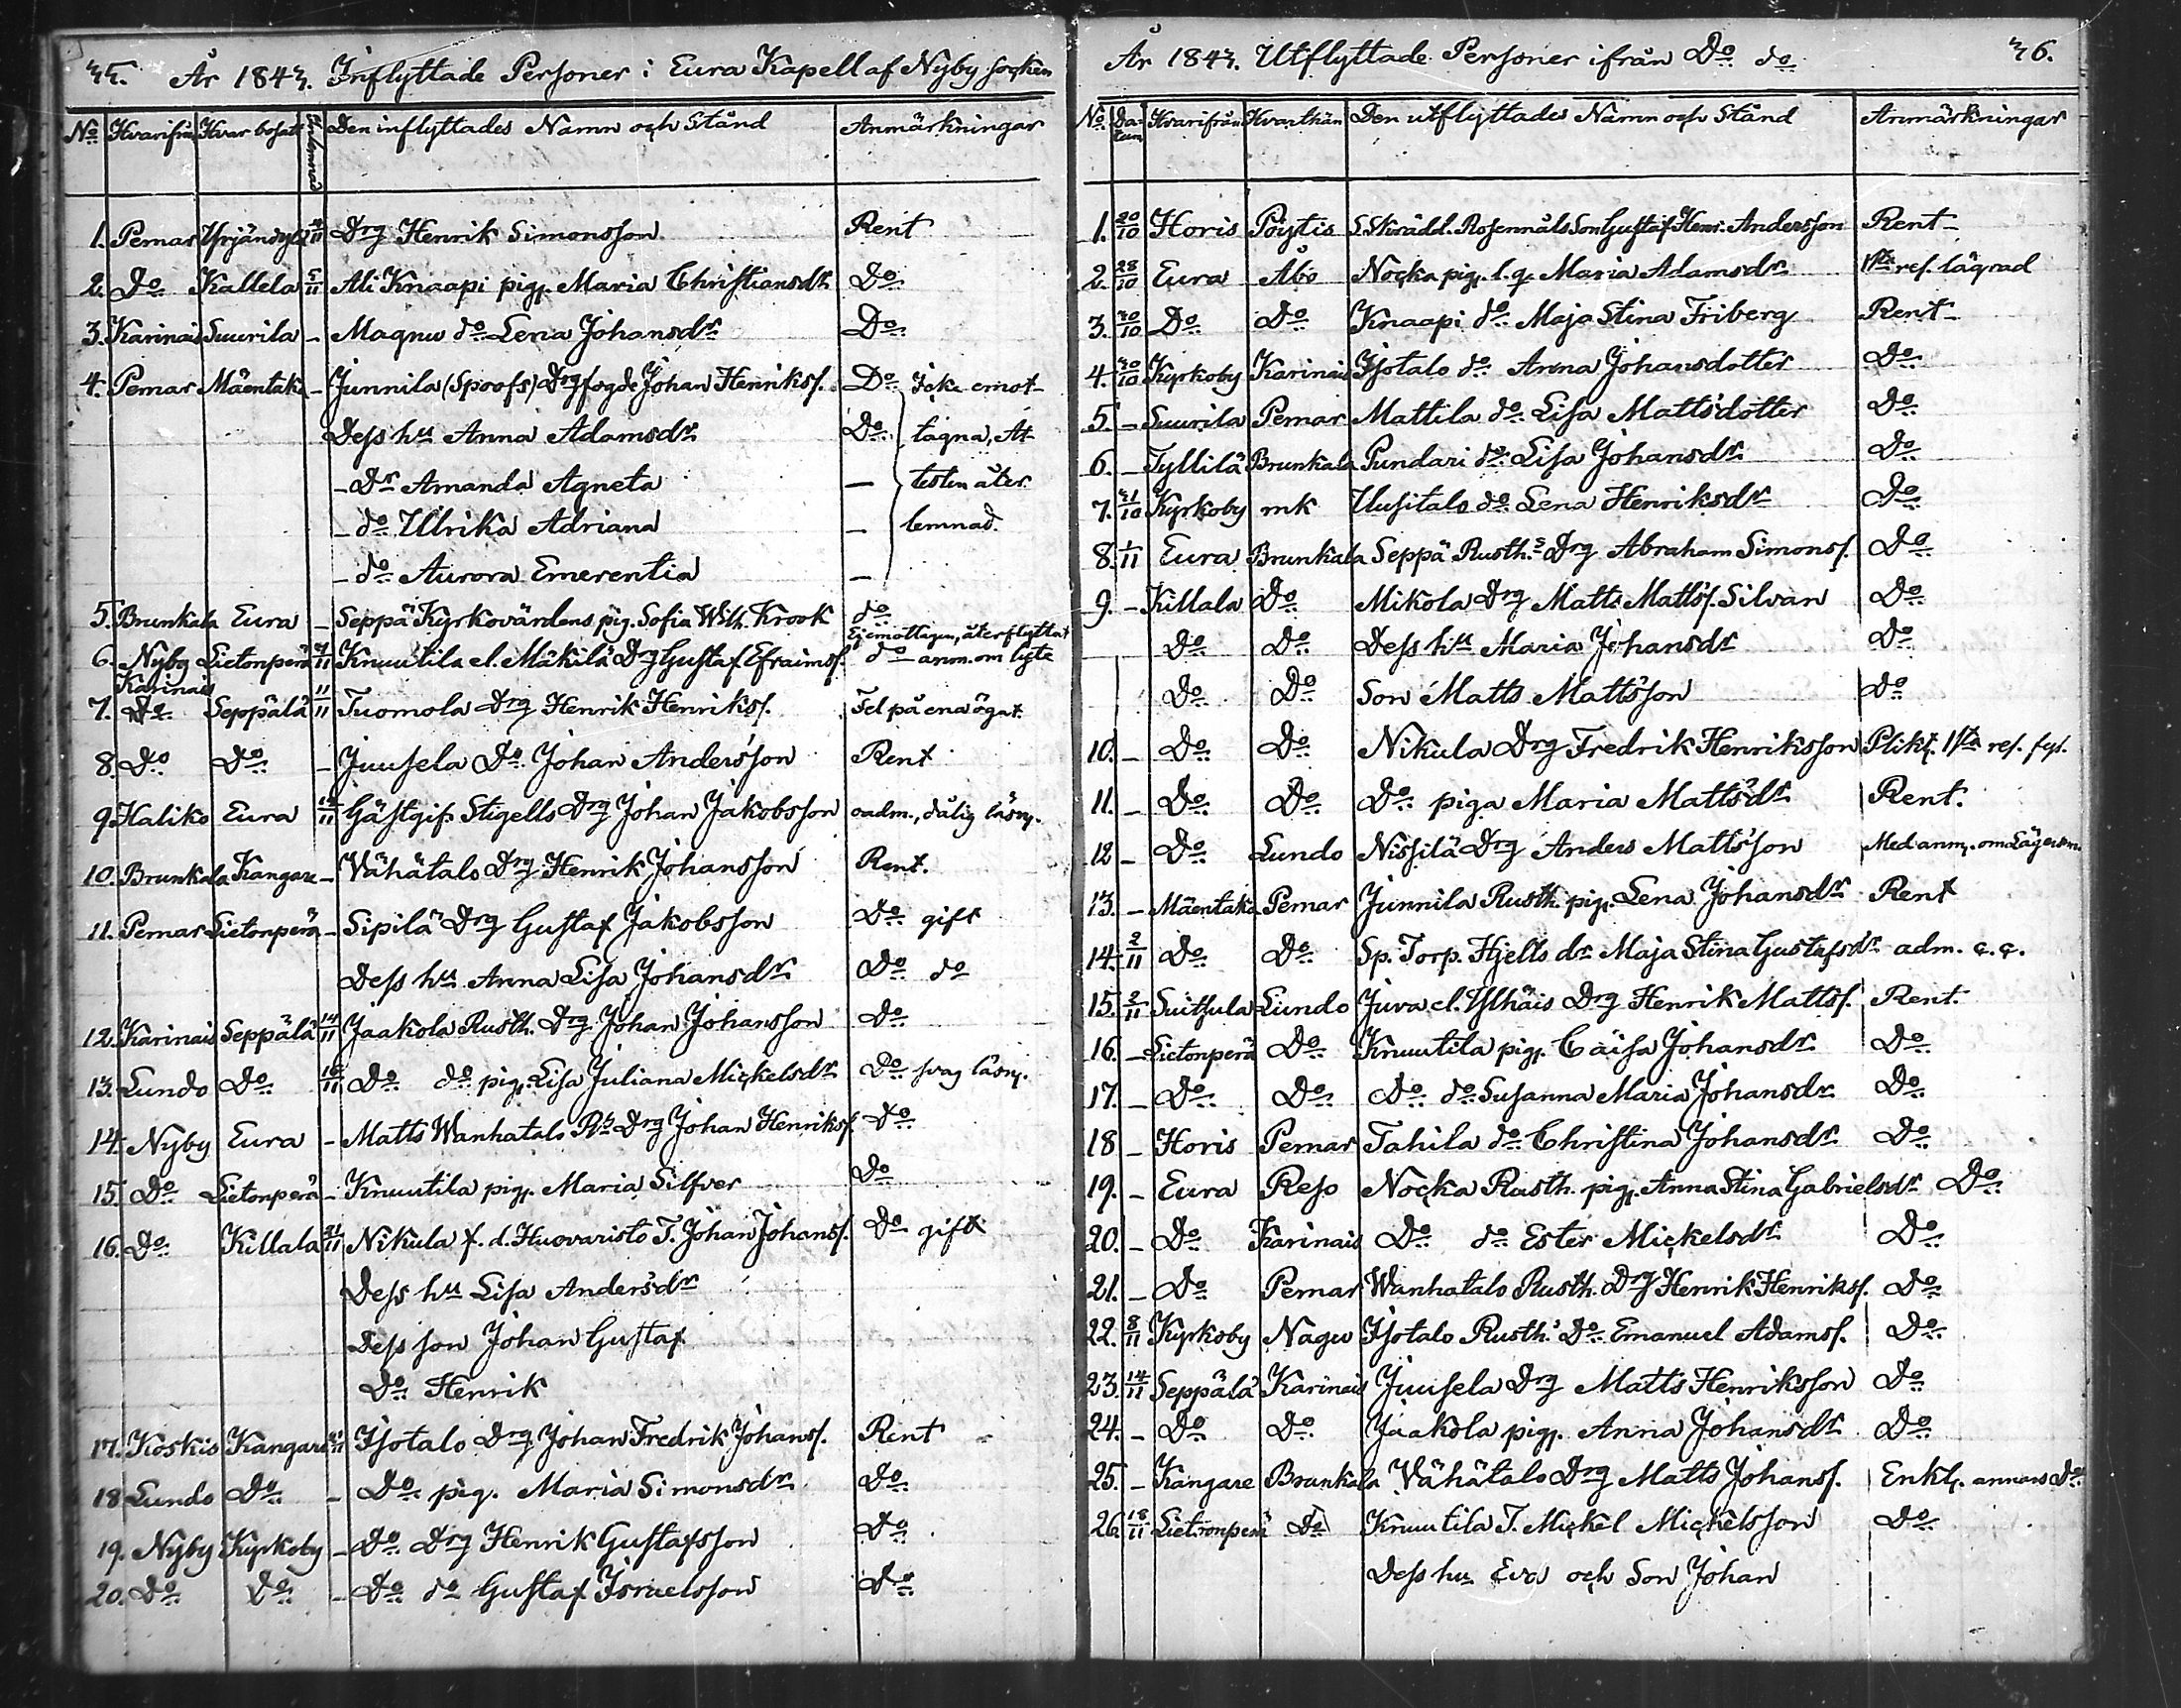 35. År 1843. Inflyttade Personer i Eura Kapell af Nyby socken
No Hvarifrån Hvar bosatt Den inflyttades Namn och Stånd Anmärkningar
1. Pemar Yrjändylä 4/11 Drg Henrik Simonsson Rent
2. Do Kallela 5/11 Ali Knaapi pig. Maria Christiansdr Do
3. Karinais Suurila - Magnu do Lena Johansdr Do
4. Pemar Mäentaka - Junnila (Spoofs) Drgfogde Johan Henrikss. Do Icke emot-
Dess hu Anna Adamsdr Do tagna, At-
- Dr Amanda Agneta - testen åter
- do Ulrika Adriana - lemnad.
- do Aurora Emerentia -
5. Brunkala Eura - Seppä Kyrkovärdens pig. Sofia Wilh. Krook do
Ej emottagen, återflyttat
6. Nyby Lietonperä Knuutila el. Mäkilä Drg Gustaf Efraimss. do anm. om lyte
Karinais
7. Do Seppälä 11/11 Tuomola Drg Henrik Henrikss. Fel på ena ögat
8. Do Do - Juusela Do Johan Andersson Rent
9. Haliko Eura Gästgif. Stigells Drg Johan Jakobsson oadm., dålig läsn.
10. Brunkala Kangare - Vähätalo Drg Henrik Johansson Rent.
11. Pemar Lietonperä - Sipilä Drg Gustaf Jakobsson Do gift
Dess hu Anna Lisa Johansdr Do do
12. Karinais Seppälä 14/11 Jaakola Rusth. Drg Johan Johansson Do
13. Lundo Do 16/11 Do do pig. Lisa Juliana Mickelsdr Do svag läsn.
14. Nyby Eura - Matts Wanhatalo Rh Drg Johan Henrikss. Do
15. Do Lietonperä - Knuutila pig. Maria Silfver Do
16. Do Killala 21/11 Nikula f. d. Huovaristo T. Johan Johanss. Do gift
Dess hu Lisa Andersdr
Dess son Johan Gustaf
Do Henrik
17. Koskis Kangare Isotalo Drg Johan Fredrik Johanss. Rent
18. Lundo Do - Do pig. Maria Simonsdr Do
19. Nyby Kyrkoby - Do Drg Henrik Gustafsson Do
20. Do Do - Do do Gustaf Israelsson Do
År 1843. Utflyttade Personer ifrån Do do 36.
No Datum Hvarifrån Hvarthän Den utflyttades Namn och Stånd Anmärkningar
1. 20/10 Horis Pöytis S. Skrädd. Rosennäls Son Gustaf Henr. Andersson Rent
2. 28/10 Eura Åbo Nocka pig. l. q. Maria Adamsdr 1sta ref. lägrad
3. 30/10 Do Do Knaapi do Maja Stina Friberg Rent
4. 30/10 Kyrkoby Karinais Isotalo do Anna Johansdotter Do
5. - Suurila Pemar Mattila do Lisa Mattsdotter Do
6. - Tyllilä Brunkala Pundari do Lisa Johansdr Do
7. 31/10 Kyrkoby mk Uusitalo do Lena Henriksdr Do
8. 1/11 Eura Brunkala Seppä Rusth.s Drg Abraham Simonss. Do
9. - Killala Do Mikola Drg Matts Mattss. Silvan Do
Do Do Dess hu Maria Johansdr Do
Do Do Son Matts Mattsson Do
10. - Do Do Nikula Drg Fredrik Henriksson Plikt. 1sta ref. fyl.
11. - Do Do Do piga Maria Mattsdr Rent.
12 - Do Lundo Nissilä Drg Anders Mattsson Med anm. om Lägersm.
13. - Mäentaka Pemar Junnila Rusth. pig. Lena Johansdr Rent
14. 2/11 Do Do Sp. Torp. Hjells dr Maja Stina Gustafsdr adm. c. c.
15. 2/11 Suitsula Lundo Juva el. Ylhäis Drg Henrik Mattss. Rent.
16. - Lietonperä Do Knuutila pig. Caisa Johansdr Do
17. - Do Do Do do Susanna Maria Johansdr Do
18 - Horis Pemar Tahila do Christina Johansdr Do
19. - Eura Reso Nocka Rusth. pig. Anna Stina Gabrielsdr Do
20. - Do Karinais Do do Ester Mickelsdr Do
21. - Do Pemar Wanhatalo Rusth. Drg Henrik Henrikss. Do
22. 8/11 Kyrkoby Nagu Isotalo Rusth.s Do Emanuel Adamss. Do
23. 14/11 Seppälä Karinais Juusela Drg Matts Henriksson Do
24. - Do Do Jaakola pig. Anna Johansdr Do
25. - Kangare Brunkala Vähätalo Drg Matts Johanss. Enkl. annars Do
26. 18/11 Lietonperä Do Knuutila T. Mickel Mickelsson Do
Dess hu Eva och Son Johan